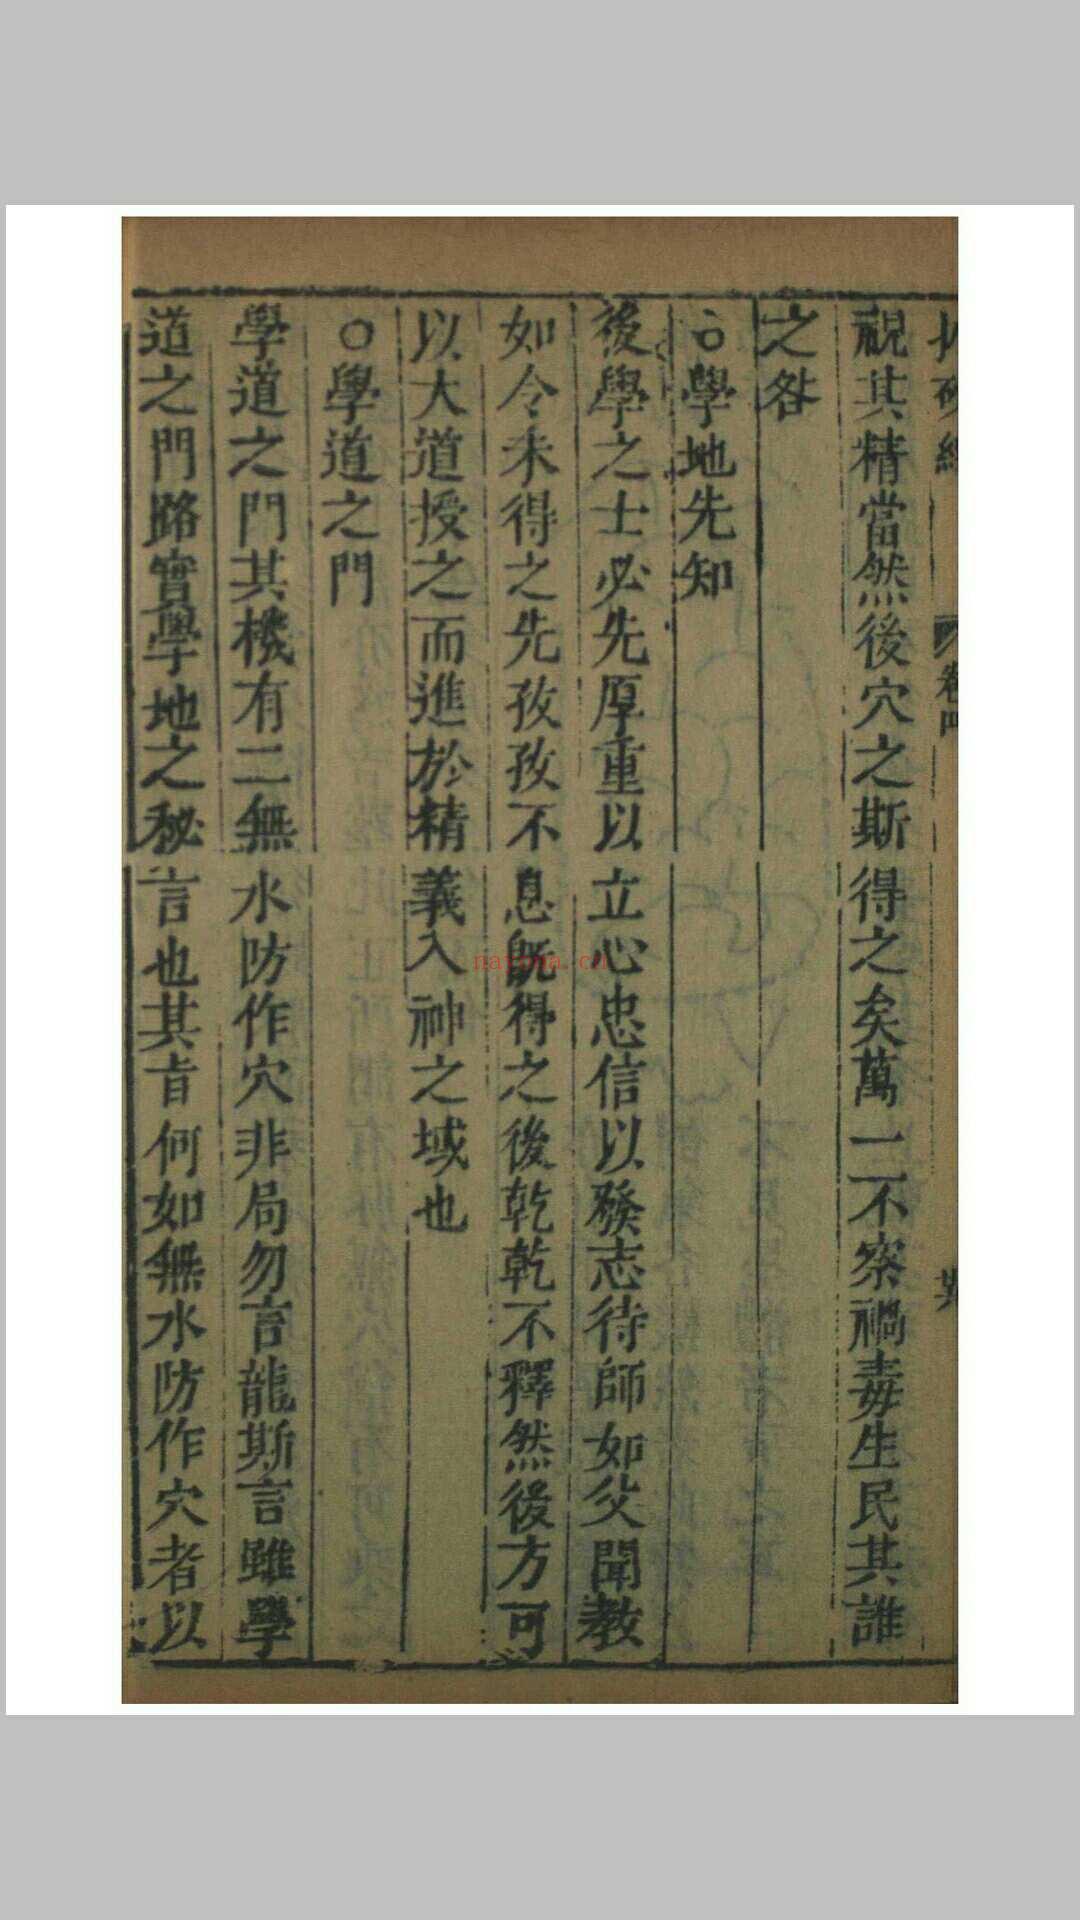 卷四
視其精當然後穴之斯得之矣萬一不察禍毒生民其誰
之咎
○學地先知
後學之士必先厚重以立心忠信以發志待師如父聞教
如令未得之先孜孜不息既得之後乾乾不釋然後方可
以大道授之而進於精義入神之域也
○學道之門
學道之門其機有二無水防作穴非局勿言龍斯言雖學
道之門路實學地之秘言也其旨何如無水防作穴者以
nayona.cn